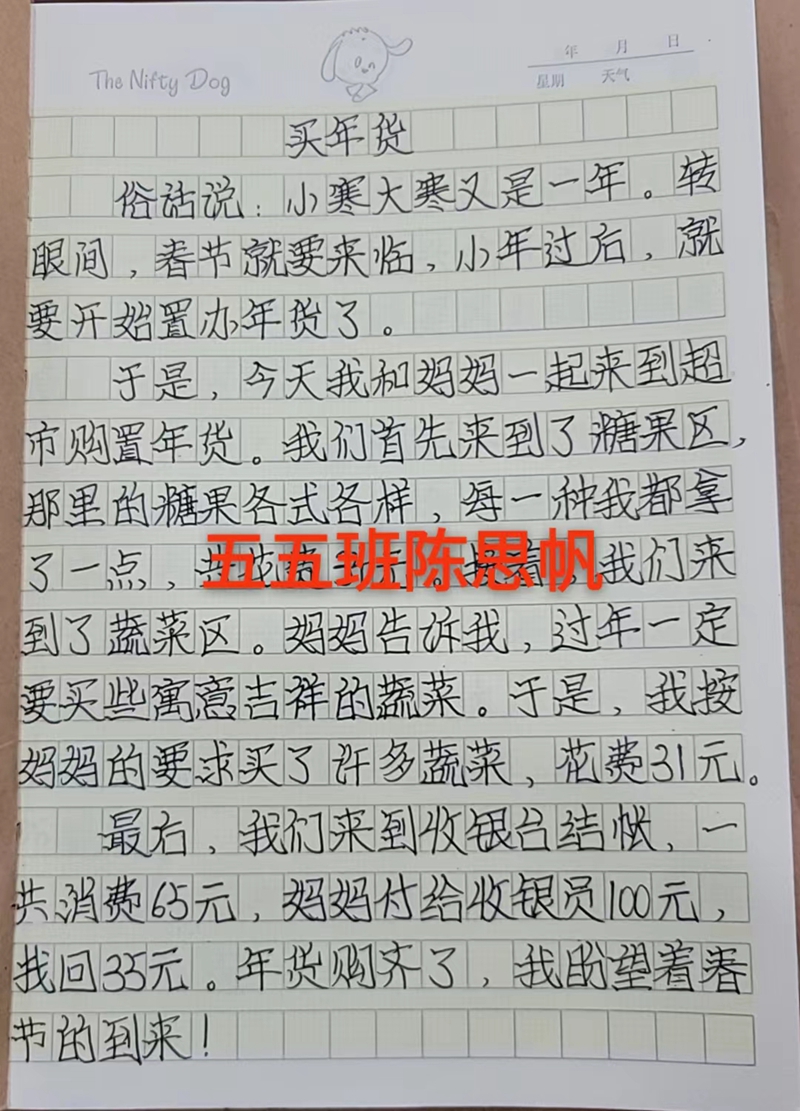 The Nifty Dog
年 月 日
星期 天气
买年货
俗话说：小寒大寒又是一年。转
眼间，春节就要来临，小年过后，就
要开始置办年货了。
于是，今天我和妈妈一起来到超
市购置年货。我们首先来到了糖果区，
那里的糖果各式各样，每一种我都拿
了一点，共花费 元。接着，我们来
五五班陈思帆
到了蔬菜区。妈妈告诉我，过年一定
要买些寓意吉祥的蔬菜。于是，我按
妈妈的要求买了许多蔬菜，花费31元。
最后，我们来到收银台结帐，一
共消费65元，妈妈付给收银员100元，
找回35元。年货购齐了，我盼望着春
节的到来！